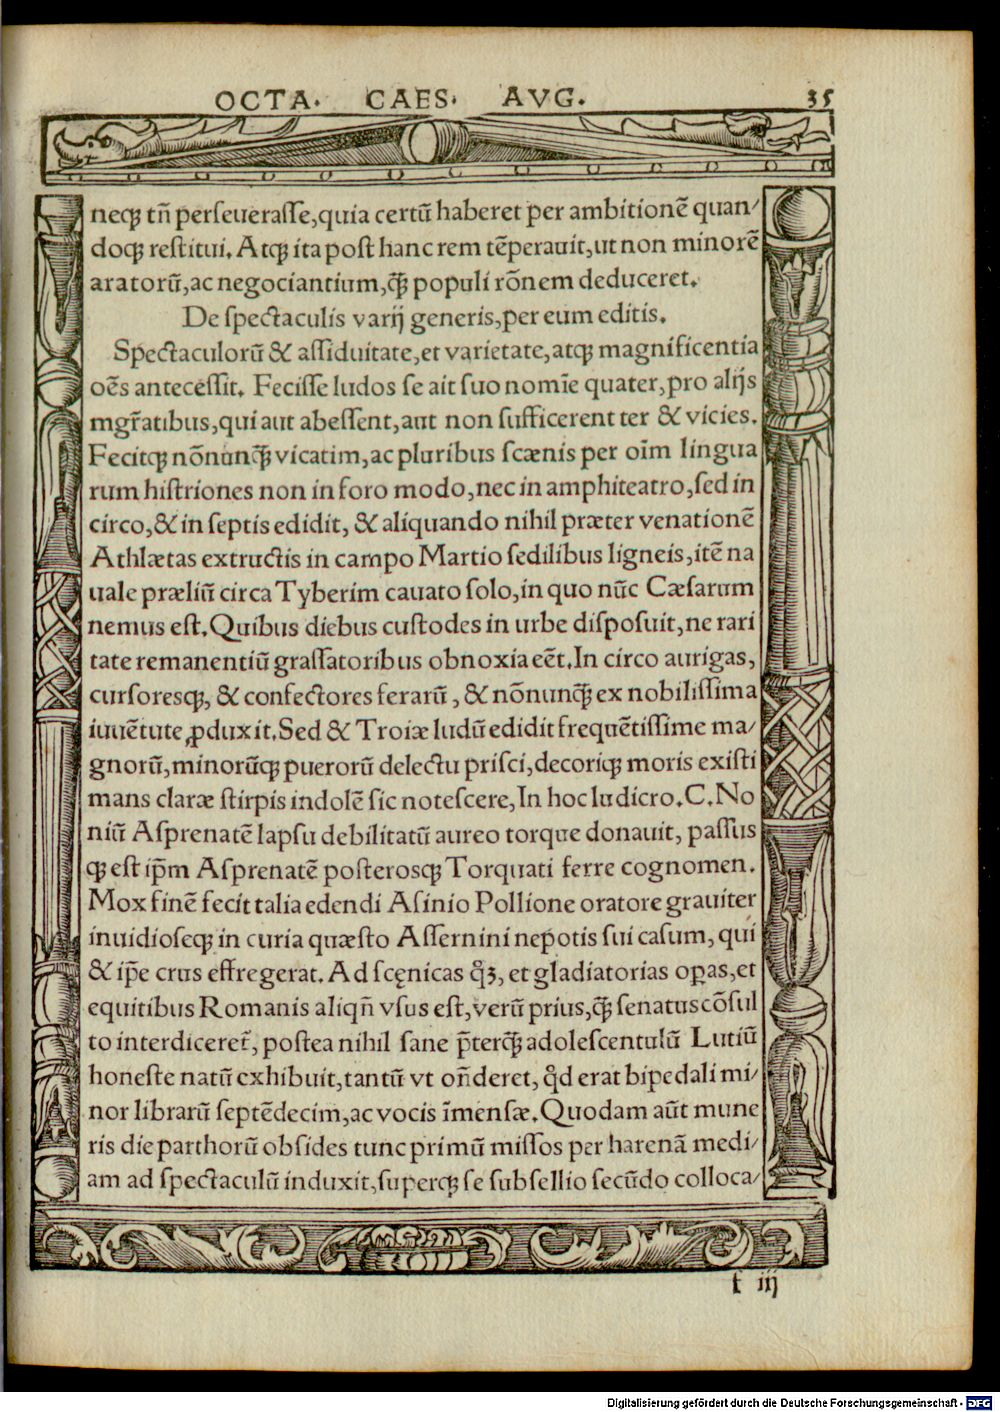 OCTA. CAES. AVG. 35
neqꝫ tñ perſeueraſſe,quia certũ haberet per ambitionẽ quan/
doqꝫ reſtitui. Atqꝫ ita poſt hanc rem tẽperauit,ut non minorẽ
aratorũ,ac negociantium,q̃ꝫ populi rõnem deduceret.
De ſpectaculis varij generis,per eum editis.
Spectaculorũ & aſſiduitate,et varietate,atqꝫ magnificentia
oẽs anteceſſit. Feciſſe ludos ſe ait ſuo nomĩe quater,pro alijs
mgr̃atibus,qui aut abeſſent,aut non ſufficerent ter & vicies.
Fecitqꝫ nõnunq̃ꝫ vicatim,ac pluribus ſcænis per oĩm lingua
rum hiſtriones non in foro modo,nec in amphiteatro,ſed in
circo,& in ſeptis edidit, & aliquando nihil præter venationẽ
Athlætas extructis in campo Martio ſedilibus ligneis,itẽ na
uale præliũ circa Tyberim cauato ſolo,in quo nũc Cæſarum
nemus eſt.Quibus diebus cuſtodes in urbe diſpoſuit,ne rari
tate remanentiũ graſſatoribus obnoxia eẽt.In circo aurigas,
curſoresqꝫ, & confectores ferarũ, & nõnunq̃ꝫ ex nobiliſſima
iuuẽtute ꝓduxit.Sed & Troiæ ludũ edidit frequẽtiſſime ma/
gnorũ,minorũqꝫ puerorũ delectu priſci,decoriqꝫ moris exiſti
mans claræ ſtirpis indolẽ ſic noteſcere,In hoc ludicro.C.No
niũ Aſprenatẽ lapſu debilitatũ aureo torque donauit, paſſus
qꝫ eſt ip̃m Aſprenatẽ poſterosqꝫ Torquati ferre cognomen.
Mox finẽ fecit talia edendi Aſinio Pollione oratore grauiter
inuidioſeqꝫ in curia quæſto Aſſernini nepotis ſui caſum, qui
& ip̃e crus effregerat. Ad ſcęnicas qͦꝫ, et gladiatorias oꝑas,et
equitibus Romanis aliqñ vſus eſt,verũ prius,q̃ꝫ ſenatuscõſul
to interdiceret̃, poſtea nihil ſane p̃terq̃ꝫ adoleſcentulũ Lutiũ
honeſte natũ exhibuit,tantũ vt oñderet, qͦd erat bipedali mi/
nor librarũ ſeptẽdecim,ac vocis ĩmenſæ.Quodam aũt mune
ris die parthorũ obſides tunc primũ miſſos per harenã medi/
am ad ſpectaculũ induxit,ſuperqꝫ ſe ſubſellio ſecũdo colloca/
f iij
Digitalisierung gefördert durch die Deutsche Forschungsgemeinschaft - DFG